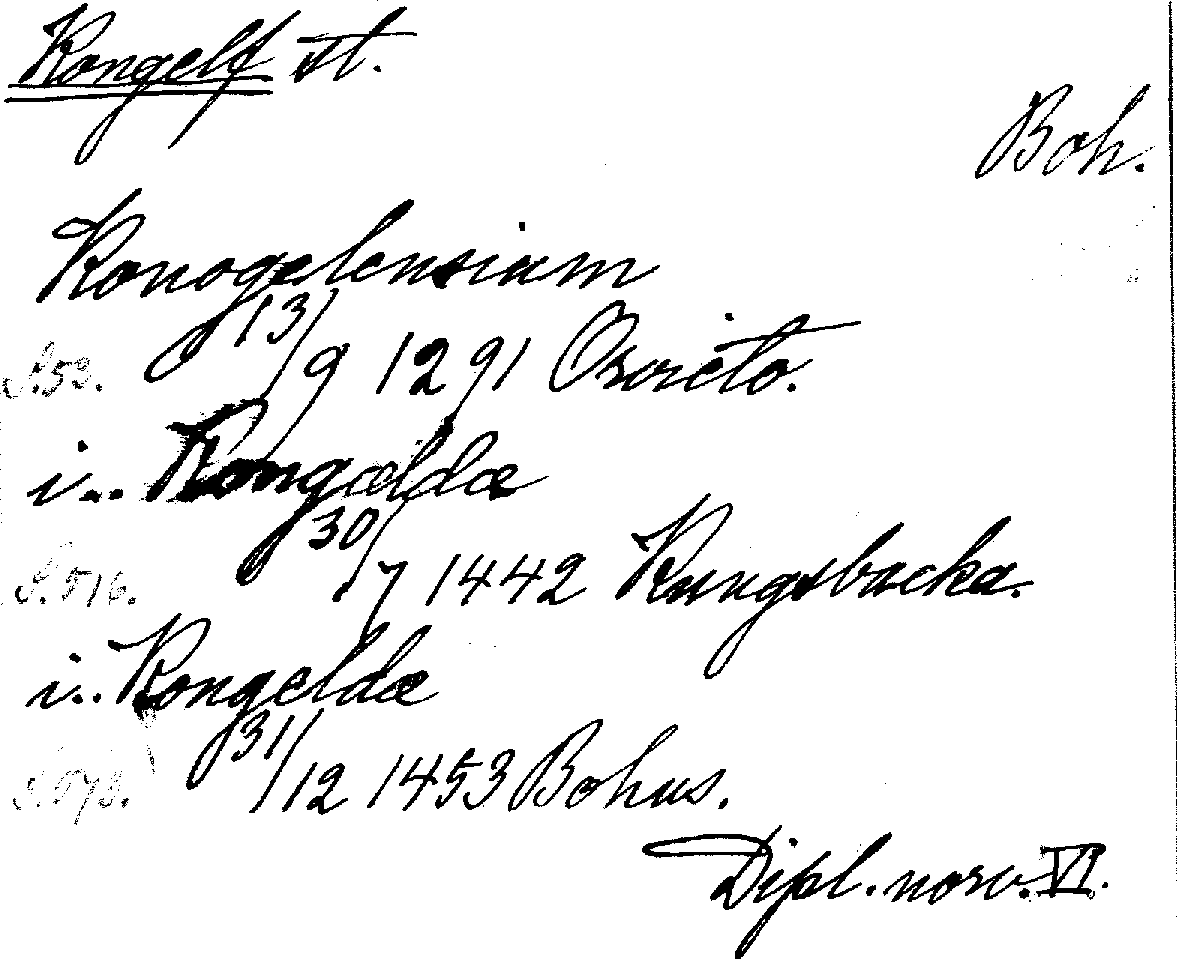 Kongelf st.
Boh.
Konogelensium
S.59. 13/9 1291 Orvieto.
i.. Kongældæ
S. 516. 30/7 1442 Kungsbacka.
i.. Kongeldæ
S. 573. 31/12 1453 Bohus.
Dipl. norv. VI.